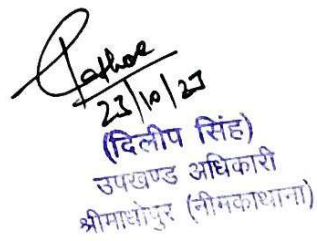 23/10/23
(दिलीप सिंह)
उपखण्ड अधिकारी
श्रीमाधोपुर (नीमकाथाना)